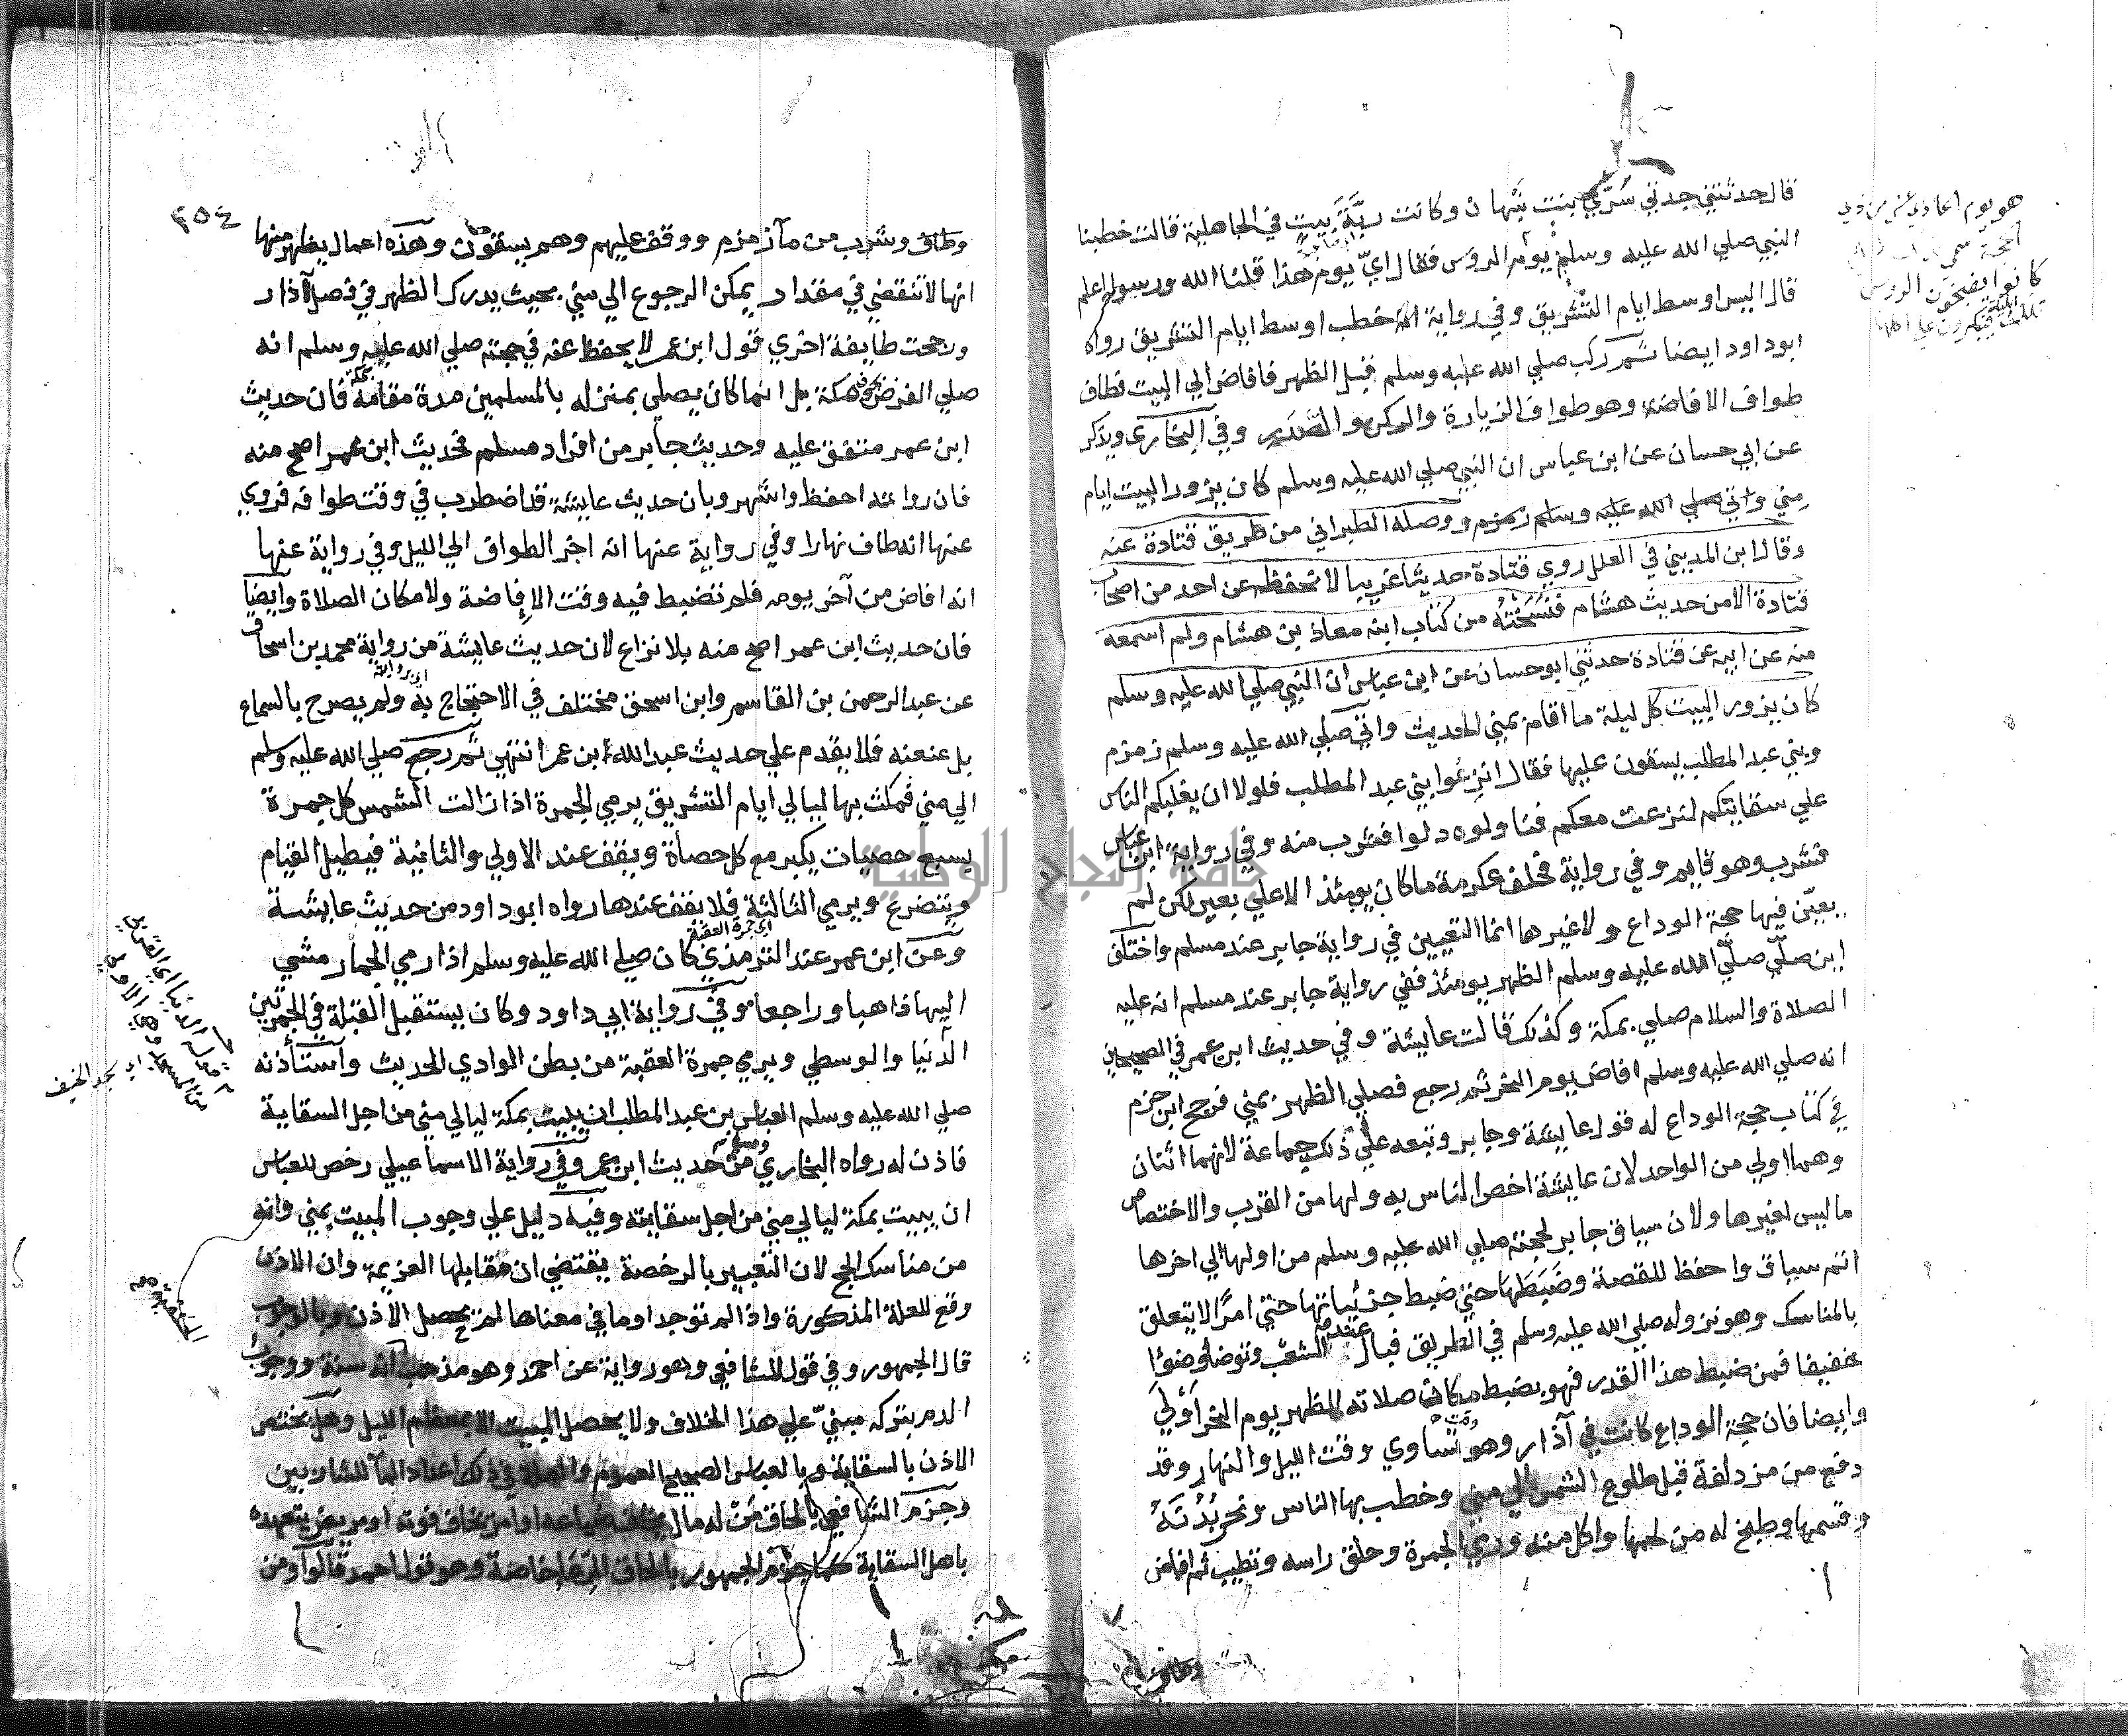 قال حدثتني جدتي سَرّي بنت نبهان وكانت ربّة بيت في الجاهلية قالت خطبنا
النبي صلي الله عليه وسلم يوم الروس فقال ايّ يوم هذا قلنا الله ورسوله اعلم
قال اليس اوسط ايام التشريق وفي رواية انه خطب اوسط ايام التشريق رواه
ابو داود ايضا ثم ركب صلي الله عليه وسلم قبل الظهر فافاض الي البيت فطاف
طواف الافاضة وهو طواف الزيارة والركن والصَدَر وفي البخاري ويذكر
عن ابي حسان عن ابن عباس ان النبي صلي الله عليه وسلم كان يزور البيت ايام
مِني واتي صلي الله عليه وسلم زمزم ووصله الطبراني من طريق قتادة عنه
وقال ابن المديني في العلل روي قتادة حديثا غريبا لا نحفظه عن احد من اصحاب
قتادة الا من حديث هشام فنسَخْتُه من كتاب ابنه معاذ بن هشام ولم اسمعه
منه عن ابيه عن قتادة حدثني ابو حسان عن ابن عباس ان النبي صلي الله عليه وسلم
كان يزور البيت كل ليلة ما اقام بمني الحديث واتي صلي الله عليه وسلم زمزم
وبني عبد المطلب يسقون عليها فقال انزِعُوا بني عبد المطلب فلولا ان يغلبكم الناس
علي سقايتكم لنزعت معكم فناولوه دلوا فشرب منه وفي رواية ابن عباس
فشرب وهو قايم وفي رواية فحلف عكرمة ما كان يومئذ الا علي بعير لكن لم
يعيّن فيها حجة الوداع ولا غيرها انما التعيين في رواية جابر عند مسلم واختلف
اين صلّي صلّي الله عليه وسلم الظهر يومئذ ففي رواية جابر عند مسلم انه عليه
الصلاة والسلام صلي بمكة وكذلك قالت عايشة وفي حديث ابن عمر في الصحيحين
انه صلي الله عليه وسلم افاض يوم النحر ثم رجع فصلي الظهر بمني فرجح ابن حزم
في كتاب حجة الوداع له قول عايشة وجابر وتبعه علي ذلك جماعة لانهما اثنان
وهما اولي من الواحد لان عايشة اخص الناس به ولها من القرب والاختصاص
ما ليس لغيرها ولان سياق جابر لحجته صلي الله عليه وسلم من اولها الي اخرها
اتم سياق واحفظ للقصة وضَبَطها حتي ضبط جزئياتها حتي امرًا لا يتعلق
بالمناسك وهو نزوله صلي الله عليه وسلم في الطريق فبال عند الشعب وتوضا وضوءًا
خفيفا فمن ضبط هذا القدر فهو بضبط مكان صلاته الظهر يوم النحر اَوْليَ
وايضا فان حجة الوداع كانت في آذار وهو تساوي وقت الليل والنهار وقد
دفع من مزدلفة قبل طلوع الشمس الي مني وخطب بها الناس ونحر بُدْنَهُ
وقسمها وطبخ له من لحمها واكل منه ورمي الجمرة وحلق راسه وتطيب ثم افاض
وطاف
هو يوم الحادي عشر من ذي
الحجة سمي
كانوا يضحون الروس
٢٥٤
وطاف وشرب من مآ زمزم ووقف عليهم وهم يسقون وهذه اعمال يظهر منها
انها لا تنقضي في مقدار يمكن الرجوع الي مني بحيث يدرك الظهر في فصل آذار
ورجحت طايفة اخري قول ابن عمر لا يحفظ عنه في حجته صلي الله عليه وسلم انه
صلي الفرض بجوف مكة بل انما كان يصلي بمنزله بالمسلمين مدة مقامه بمكة فان حديث
ابن عمر متفق عليه وحديث جابر من افراد مسلم فحديث ابن عمر اصح منه
فان رواته احفظ واشهر وبان حديث عايشة قد اضطرب في وقت طوافه فروي
عنها انه طاف نهارا وفي رواية عنها انه اخر الطواف الي الليل وفي رواية عنها
انه افاض من آخر يومه فلم تضبط فيه وقت الافاضة ولا مكان الصلاة وايضا
فان حديث ابن عمر اصح منه بلا نزاع لان حديث عايشة من رواية محمد بن اسحاق
عن عبد الرحمن بن القاسم وابن اسحق مختلف في الاحتجاج به ولم يصرح بالسماع
اي بروايته
بل عنعنه فلا يقدم علي حديث عبد الله بن عمر انتهي ثم رجع صلي الله عليه وسلم
الي مني فمكث بها ليالي ايام التشريق يرمي الجمرة اذا زالت الشمس كل جمرة
بسبع حصيات يكبر مع كل حصاة ويقف عند الاولي والثانية فيطيل القيام
ويتضرع ويرمي الثالثة فلا يقف عندها رواه ابو داود من حديث عايشة
اي جمرة العقبة
وعن ابن عمر عند الترمذي كان صلي الله عليه وسلم اذا رمي الجمار مشي
اليها ذاهبا وراجعا وفي رواية ابي داود وكان يستقبل القبلة في الجمرتين
الدنيا والوسطي ويرمي جمرة العقبة من بطن الوادي الحديث واستأذنه
صلي الله عليه وسلم العباس بن عبد المطلب ان يبيت بمكة ليالي مني من اجل السقاية
فاذن له رواه البخاري ومسلم من حديث ابن عمر وفي رواية الاسماعيلي رخص للعباس
ان يبيت بمكة ليالي مني من اجل سقايته وفيه دليل علي وجوب المبيت بمني وانه
من مناسك الحج لان التعبير بالرخصة يقتضي ان مقابلها العزيمة وان الاذن
وقع للعلة المذكورة واذا لم توجد او ما في معناها لم يحصل الاذن وبالوجوب
قال الجمهور وفي قول للشافعي وهو رواية عن احمد وهو مذهب انه سنة ووجوب
الدم بتركه مبنيّ علي هذا الخلاف ولا يحصل المبيت الا بمعظم الليل وهل يختص
الاذن بالسقاية وبالعباس الصحيح العموم والعلة في ذلك اعداد المآ للشاربين
وجزم الشافعي بالحاق مَنْ له مال يخاف ضياعه او امر يخاف فوته او مريض يتعهده
باهل السقاية كما جزم الجمهور بالحاق الرِعَا خاصة وهو قول احمد قالوا ومن
قوله الدنيا اي القريبة
من المسجد وهي الاولي
اي مسجد الخيف
الحنفية صح
جامعة النجاح الوطنية